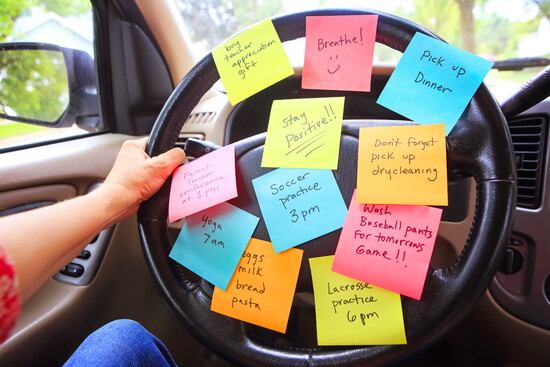 buy
teacher
appreciation
gift
Breathe!
Pick up
Dinner
Stay
Positive!!
Don't forget
pick up
drycleaning
Parent
Teacher
conference
at 1 pm
Soccer
practice
3 pm
Wash
Baseball pants
For tomorrows
Game!!
Yoga
7am
eggs
milk
bread
pasta
Lacrosse
practice
6 pm